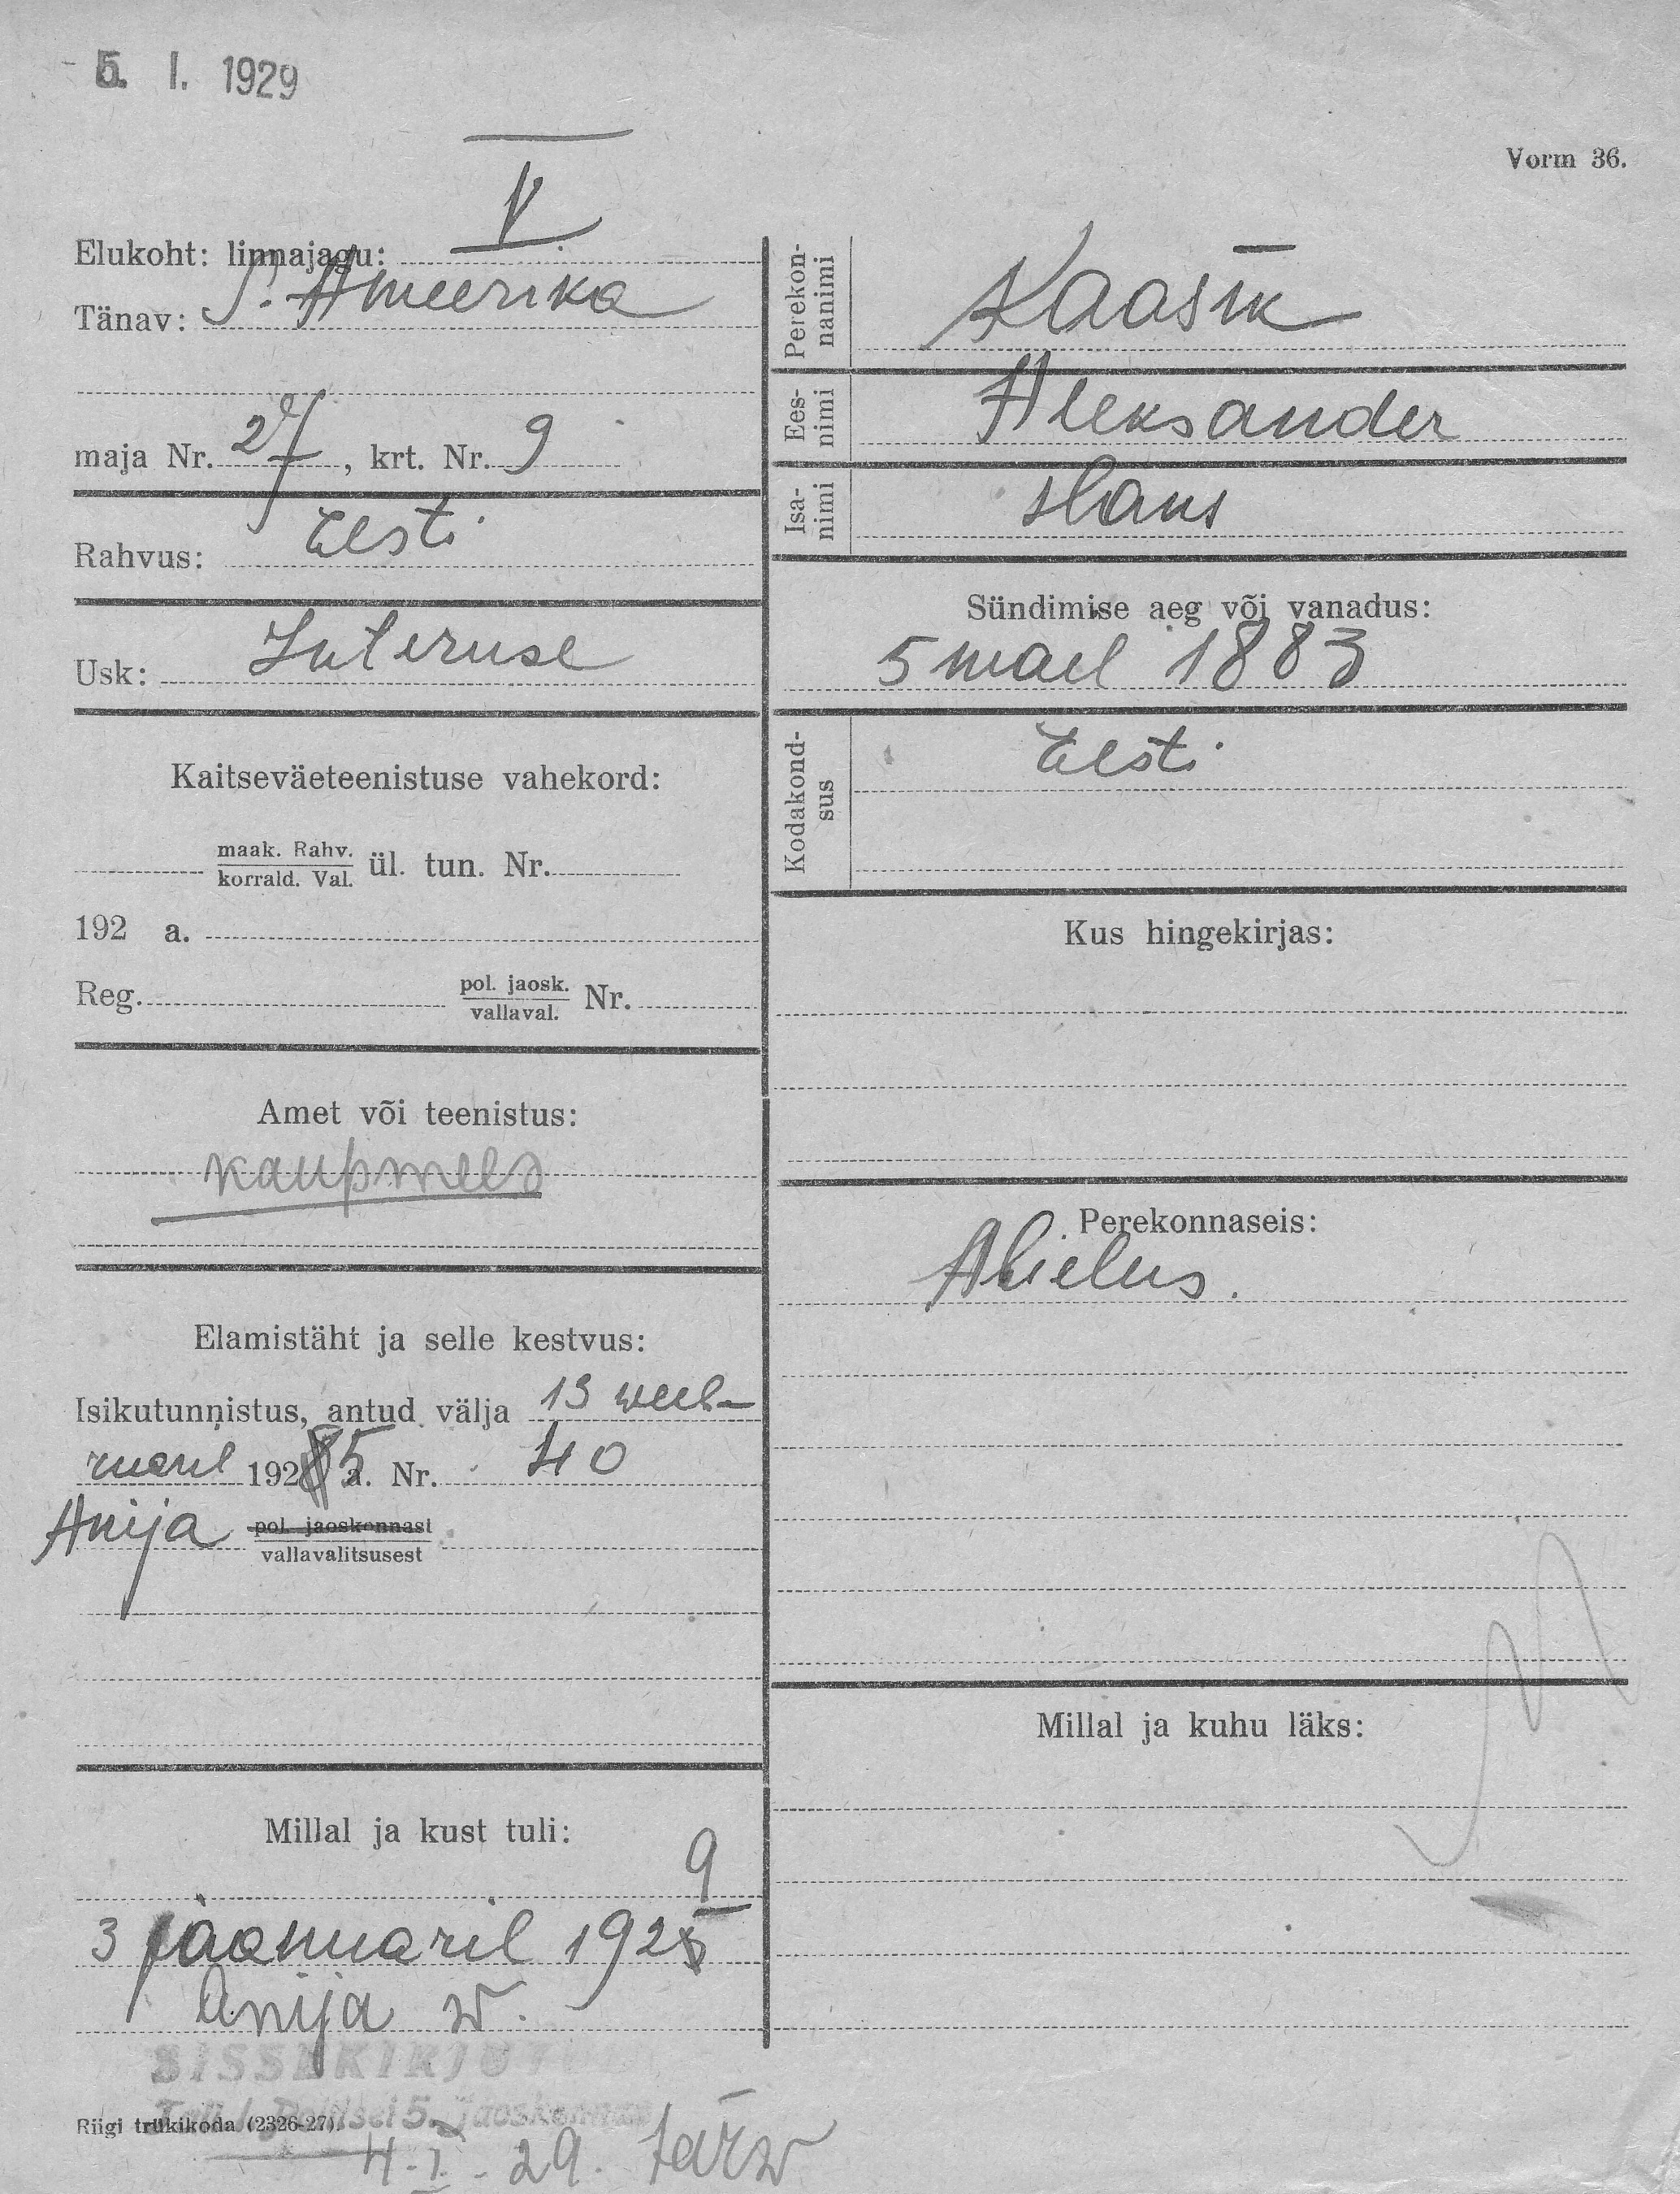 5. I. 1929
Vorm 36.
Elukoht: linnajagu: V
Tänav: S. Ameerika
maja Nr. 27, krt. Nr. 9
Rahvus: Eesti
Usk: Luteruse
Kaitseväeteenistuse vahekord:
maak. Rahv.
korrald. Val. ül. tun. Nr.
192 a.
Reg. pol. jaosk.
vallaval. Nr.
Amet või teenistus:
kaupmees
Elamistäht ja selle kestvus:
Isikutunnistus, antud välja 13 weeb-
ruaril 1925 a. Nr. 40
Anija pol. jaoskonnast
vallavalitsusest
Millal ja kust tuli:
9
3 jaanuaril 192
Anija w.
SISSEKIRJUT
Tall. Politsei 5. jaoskonnas
Riigi trükikoda (2326-27).
4.I.-29.
Perekon-
nanimi
Kaasik
Ees-
nimi
Aleksander
Isa-
nimi
Hans
Sündimise aeg või vanadus:
5 mael 1883
Kodakond-
sus
Eesti
Kus hingekirjas:
Perekonnaseis:
Abielus.
Millal ja kuhu läks: